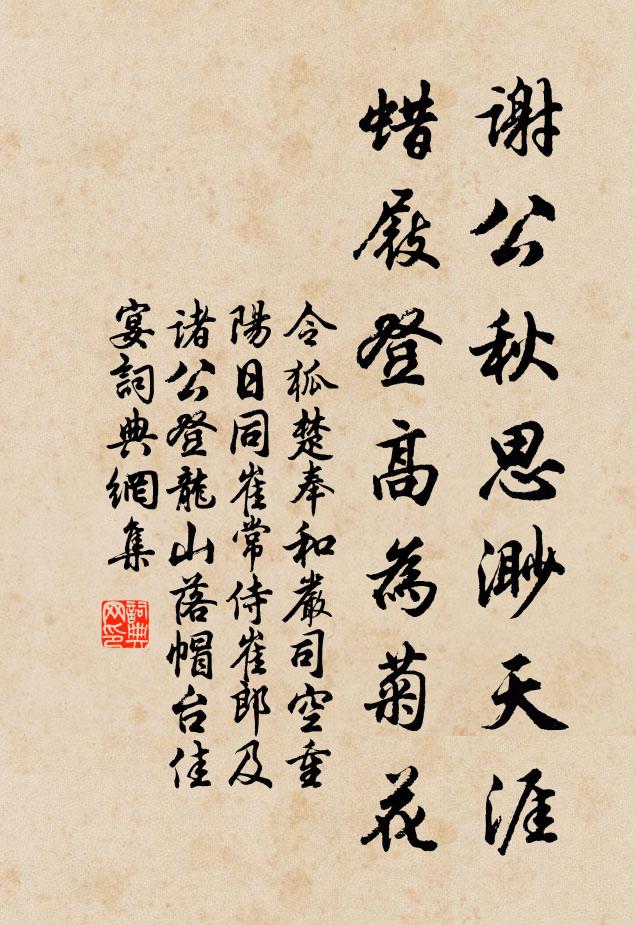 谢公秋思渺天涯
蜡屐登高為菊花
令狐楚奉和嚴司空重
陽日同崔常侍崔郎及
诸公登龍山落帽台佳
宴詞典網集
詞典网印